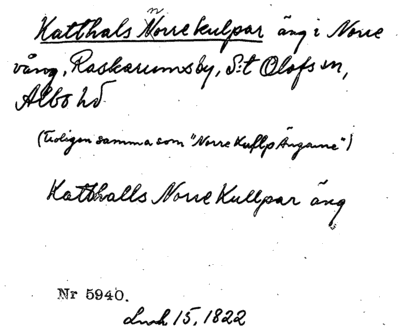 Katthals Norrekulpar äng i Norre
vång, Raskarumsby, S:t Olofs sn,
Albo hd
(Troligen samma som "Norre Kullp Ängarne")
Katthalls Norre Kullpar äng
Nr 5940.
Lmh 15, 1822